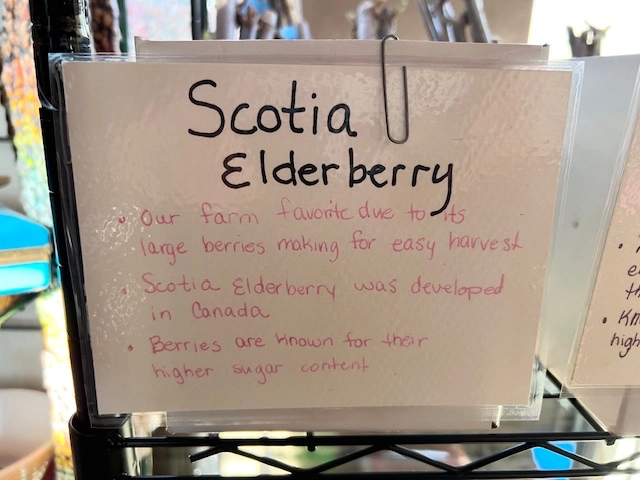 Scotia
Elderberry
• Our farm favorite due to its
large berries making for easy harvest
• Scotia Elderberry was developed
in Canada
• Berries are known for their
higher sugar content
• Kn
high